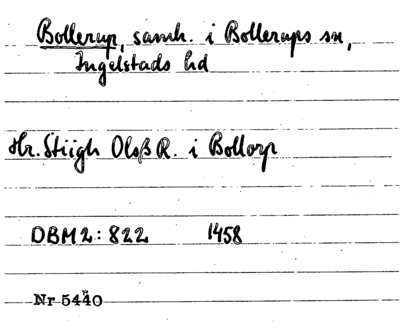 Bollerup, samh. i Bollerups sn,
Ingelstads hd
Hr. Stiigh OlsßR. i Bollorp
DBM2: 822 1458
Nr 5440